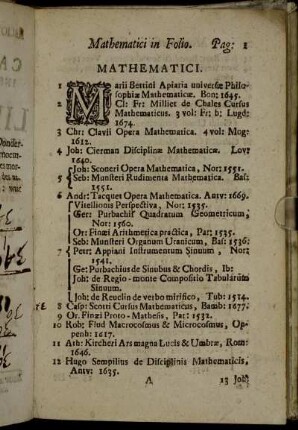 Mathematici in Folio. Pag: 1
MATHEMATICI.
1 Marii Bettini Apiaria universæ Philo-
sophiæ Mathematicæ. Bon: 1645.
2 Cl: Fr: Milliet de Chales Cursus
Mathematicus. 3 vol: Fr: b; Lugd:
1674.
3 Chr: Clavii Opera Mathematica. 4 vol: Mog:
1612.
4 Joh: Cierman Disciplinæ Mathematicæ. Lov:
1640.
Joh: Sconeri Opera Mathematica, Nor: 1551.
5 Seb: Munsteri Rudimenta Mathematica. Bas:
1551.
6 Andr: Tacques Opera Mathematica. Antv: 1669.
Vitellionis Perspectiva, Nor: 1535.
Geor: Purbachii Quadratum Geometricum,
Nor: 1560.
Or: Finæi Arithmetica practica, Par: 1535.
Seb: Munsteri Organum Uranicum, Bas: 1536:
7 Petr: Appiani Instrumentum Sinuum, Nor:
1541.
Ge: Purbachius de Sinubus & Chordis, Ib:
Joh: de Regio-monte Compositio Tabularum
Sinuum.
Joh: de Reuclin de verbo mirifico, Tub: 1514.
8 Casp: Scotti Cursus Mathematicus, Bamb: 1677.
9 Or. Finæi Proto-Mathesis, Par: 1532.
10 Rob: Flud Macrocosmus & Microcosmus, Op-
penh: 1617.
11 Ath: Kircheri Ars magna Lucis & Umbræ, Rom:
1646.
12 Hugo Sempilius de Disciplinis Mathematicis,
Antv: 1635.
A 13 Joh: